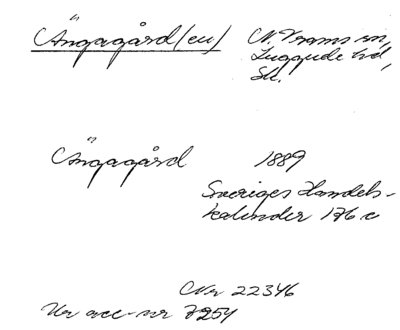 Ängagård(en) N. Vrams sn,
Luggude hd,
Sk.
Ängagård 1889
Sveriges Handels-
kalender 176 c
Nr 22346
Ur acc-nr 7254